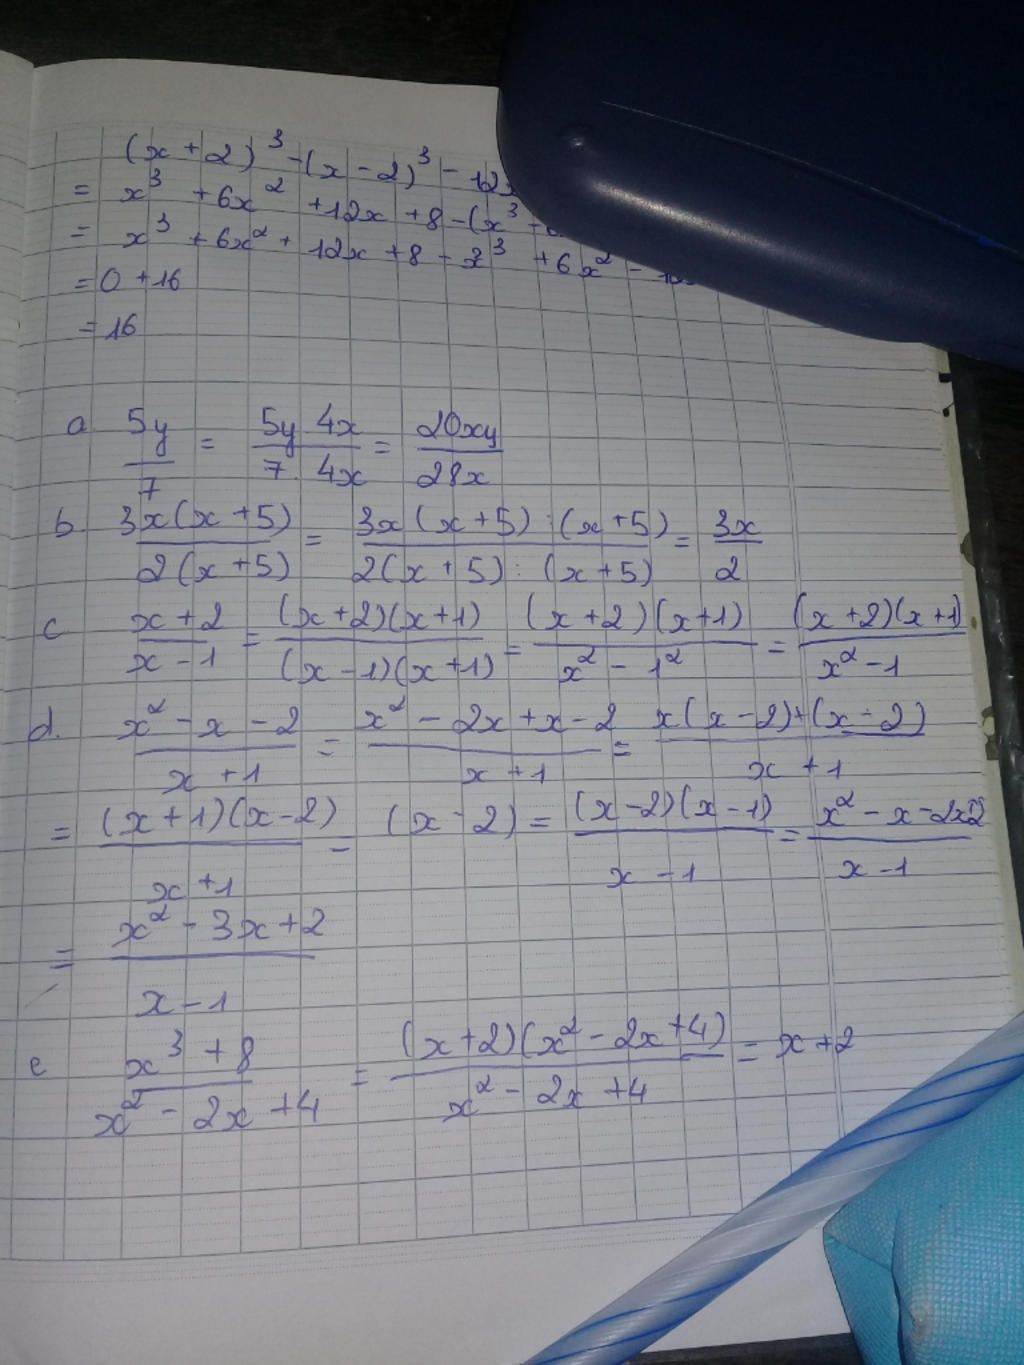 (x + 2)³ - (x - 2)³ - 12x
= x³ + 6x² + 12x + 8 - (x³ - 6
= x³ + 6x² + 12x + 8 - x³ + 6x² - 12
= 0 + 16
= 16
a 5y/7 = 5y 4x/7. 4x = 20xy/28x
b. 3x(x + 5)/2(x + 5) = 3x(x + 5) : (x + 5)/2(x + 5) : (x + 5) = 3x/2
c x + 2/x - 1 = (x + 2)(x + 1)/(x - 1)(x + 1) = (x + 2)(x + 1)/x² - 1² = (x + 2)(x + 1)/x² - 1
d. x² - x - 2/x + 1 = x² - 2x + x - 2/x + 1 = x(x - 2) + (x - 2)/x + 1
= (x + 1)(x - 2)/x + 1 = (x - 2) = (x - 2)(x - 1)/x - 1 = x² - x - 2x2/x - 1
= x² - 3x + 2/x - 1
e x³ + 8/x² - 2x + 4 = (x + 2)(x² - 2x + 4)/x² - 2x + 4 = x + 2